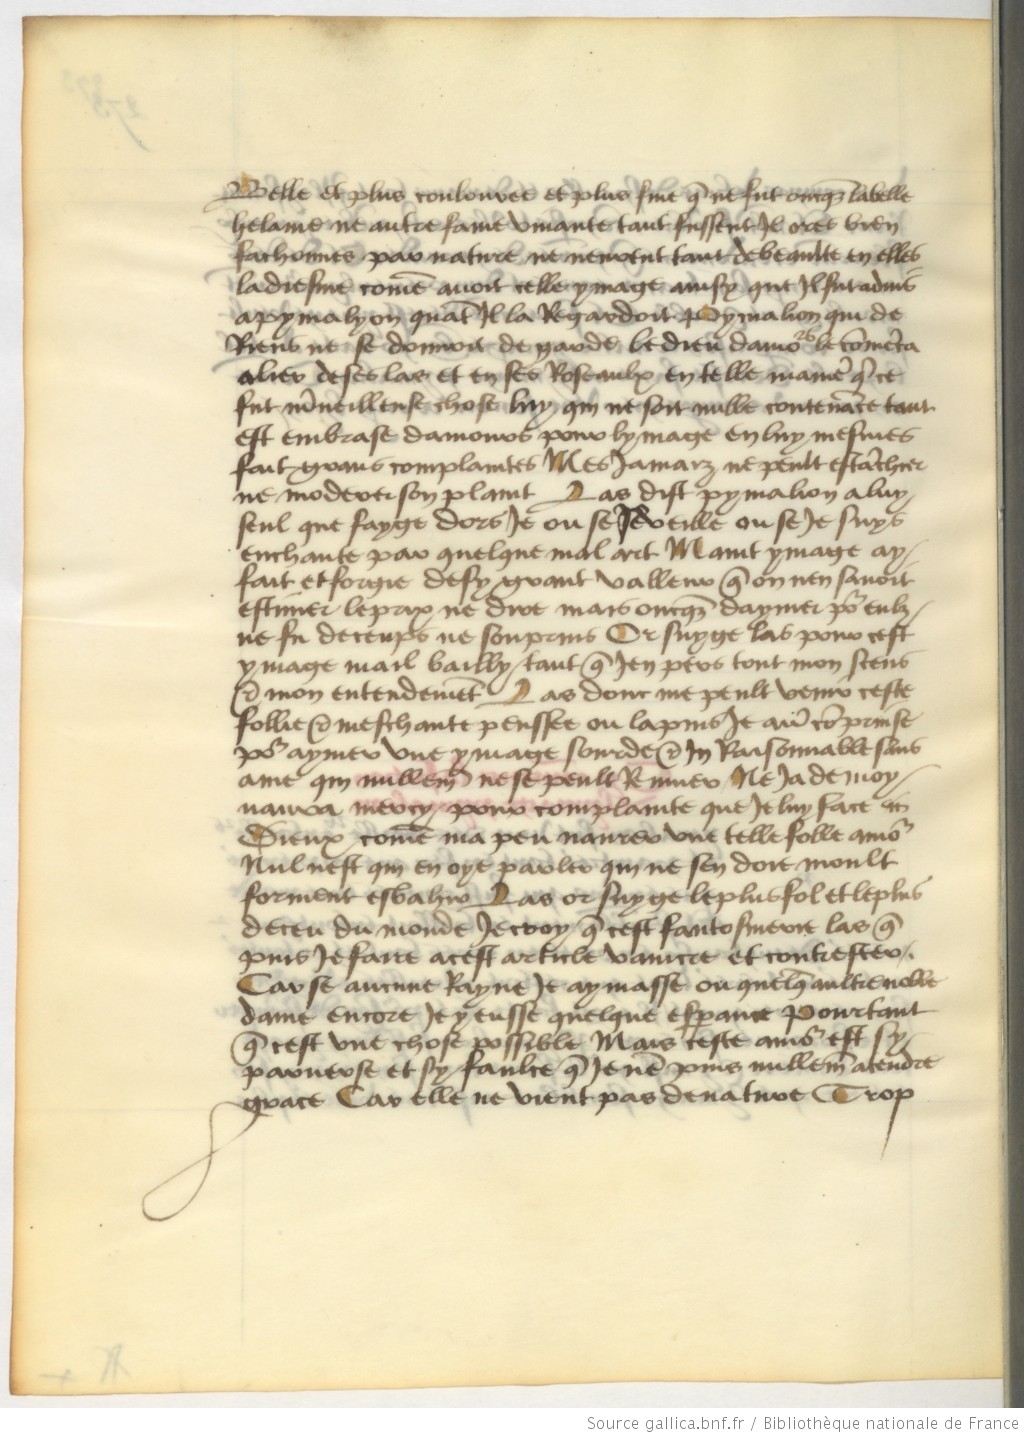 Belle et plus coulouree et plus fine q̃ ne fut oncq̃s la belle
helaine ne autre fame viuante tant fussent Il ores bien
fachonnes par nature ne neurent tant de beaulte en elles
la diesme com̃e auoit celle ymage ainsy que Il fut aduis
a pymalyon quãt Il la Regardoit Pymalion qui de
Riens ne se donnoit de garde le dieu damo͛s le cõmẽca
a lier de ses las et en ses Roseaulx en telle manie͛ q̃ ce
fut m͛ueilleuse chose luy qui ne scit nulle contenãce tant
est embrase damours pour lymage en luy mesmes
fait grans complaintes Mes Jamarz ne peult estãchier
ne moderer son plaint Las dist pymalion a luy
seul que fayge dors Je ou se Je veille ou se Je suys
enchante par quelque mal art Maint ymage ay
fait et forgie de sy grant valleur q̃ on nen sauoit
estimer le prix ne dire mais oncq̃s daymer po͛ eulx
ne fu deceups ne souprins Or suyge las pour cest
ymage mail bailly tant q̃ Jen pers tout mon scens
& mon entendemẽt Las dont me peult venir ceste
follie & meschante penssee ou la puis Je au͛ cõprinse
po͛ aymer vne ymage sourde & In Raisonnable sans
ame qui nullem̃ ne se peult Remuer Ne Ja de moy
naura mercy pour complainte que Je luy face
Dieux com̃e ma peu naurer vne telle folle amo͛
Nul nest qui en oye parler qui ne sen doie moult
forment esbahir Las or suyge le plus fol et le plus
deceu du monde Je croy q̃ cest fantosmerie las q̃
puis Je faire a cest article vaincre et contrester.
Car se aucune Rayne Je aymasse ou quelq̃ aultre noble
dame encore Je y eusse quelque esperance Pourtant
q̃ cest vne chose possible Mais ceste amo͛ est sy
paruerse et sy faulce q̃ Je nẽ puis nullem̃ atendre
grace Car elle ne vient pas de nature Trop
Source gallica.bnf.fr / Bibliothèque nationale de France